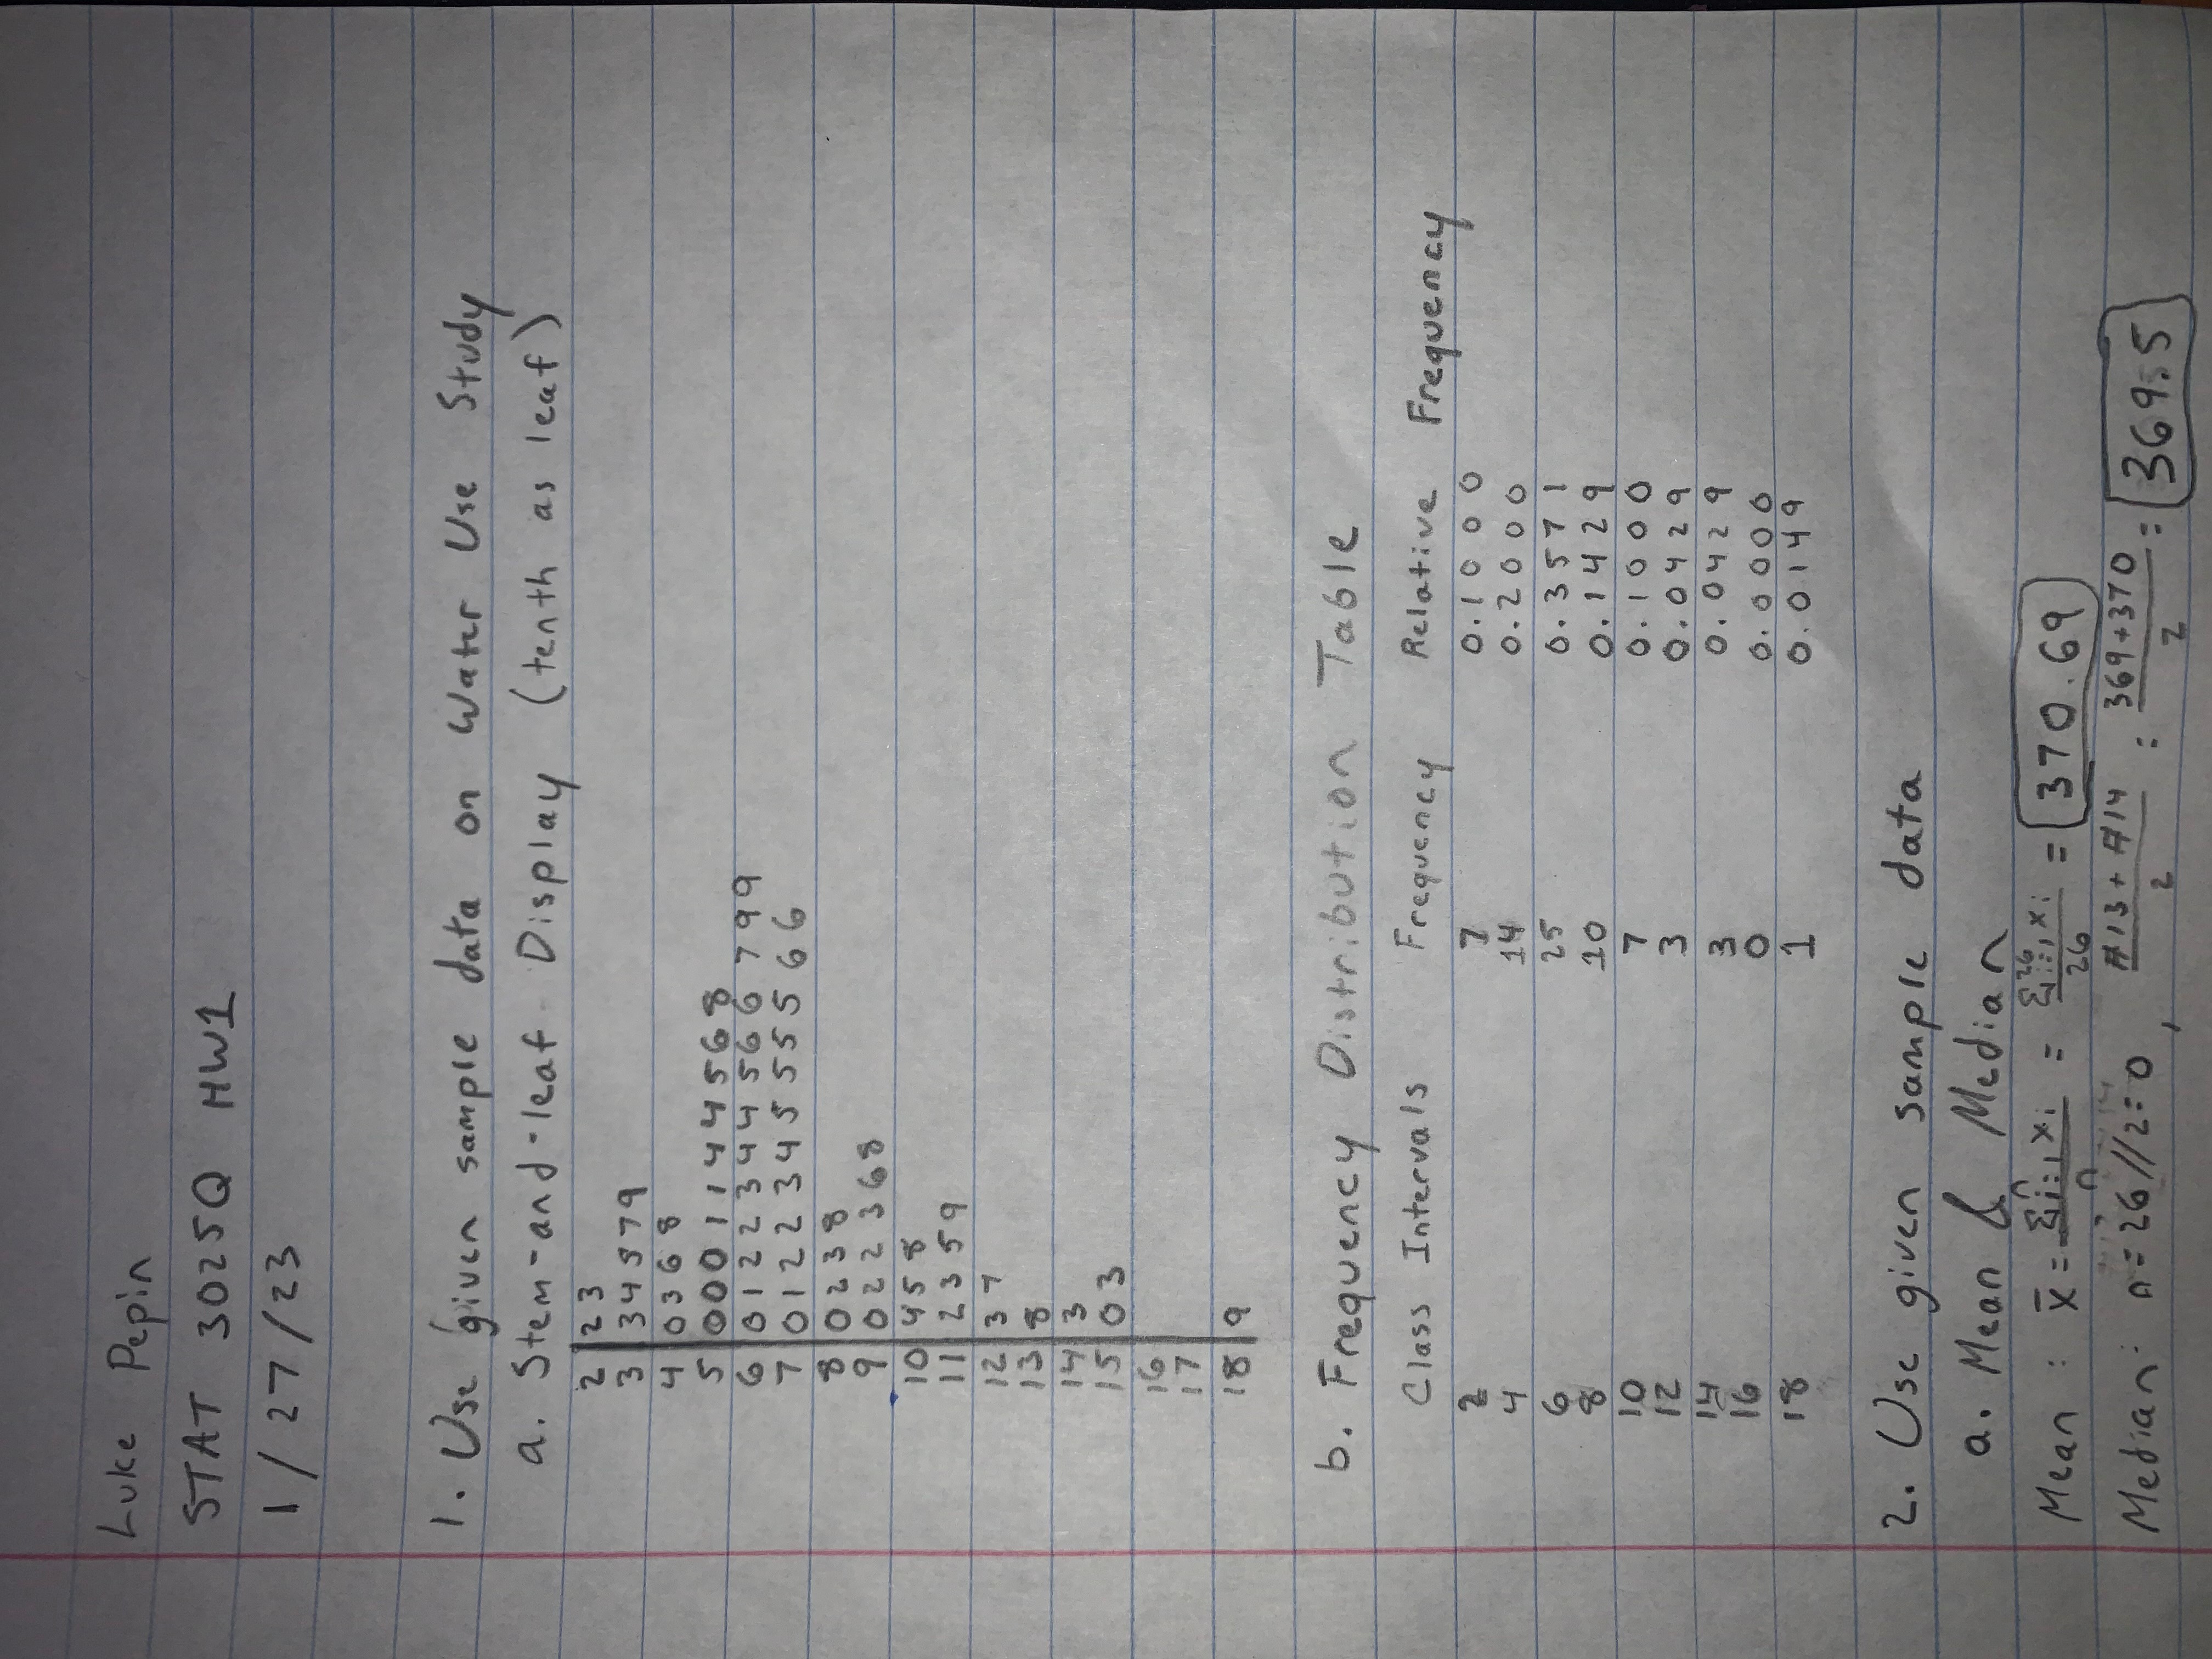 Luke Pepin
STAT 3025Q HW1
1/27/23
1. Use given sample data on Water Use Study
a. Stem-and-leaf Display (tenth as leaf)
2 | 2 3
3 | 3 4 5 7 9
4 | 0 3 6 8
5 | 0 0 0 1 1 4 4 5 6 8
6 | 0 1 2 2 3 4 4 5 6 6 7 9 9
7 | 0 1 2 2 3 4 5 5 5 5 6 6
8 | 0 2 3 8
9 | 0 2 2 3 6 8
10 | 4 5 8
11 | 2 3 5 9
12 | 3 7
13 | 8
14 | 3
15 | 0 3
16 |
17 |
18 | 9
b. Frequency Distribution Table
Class Intervals Frequency Relative Frequency
2 7 0.1000
4 14 0.2000
6 25 0.3571
8 10 0.1429
10 7 0.1000
12 3 0.0429
14 3 0.0429
16 0 0.0000
18 1 0.0149
2. Use given sample data
a. Mean & Median
Mean : x̄ = Σⁿi=1 xi / n = Σ²⁶i=1 xi / 26 = 370.69
Median: n=26//2=0, #13 + #14 / 2 = 369+370 / 2 = 369.5